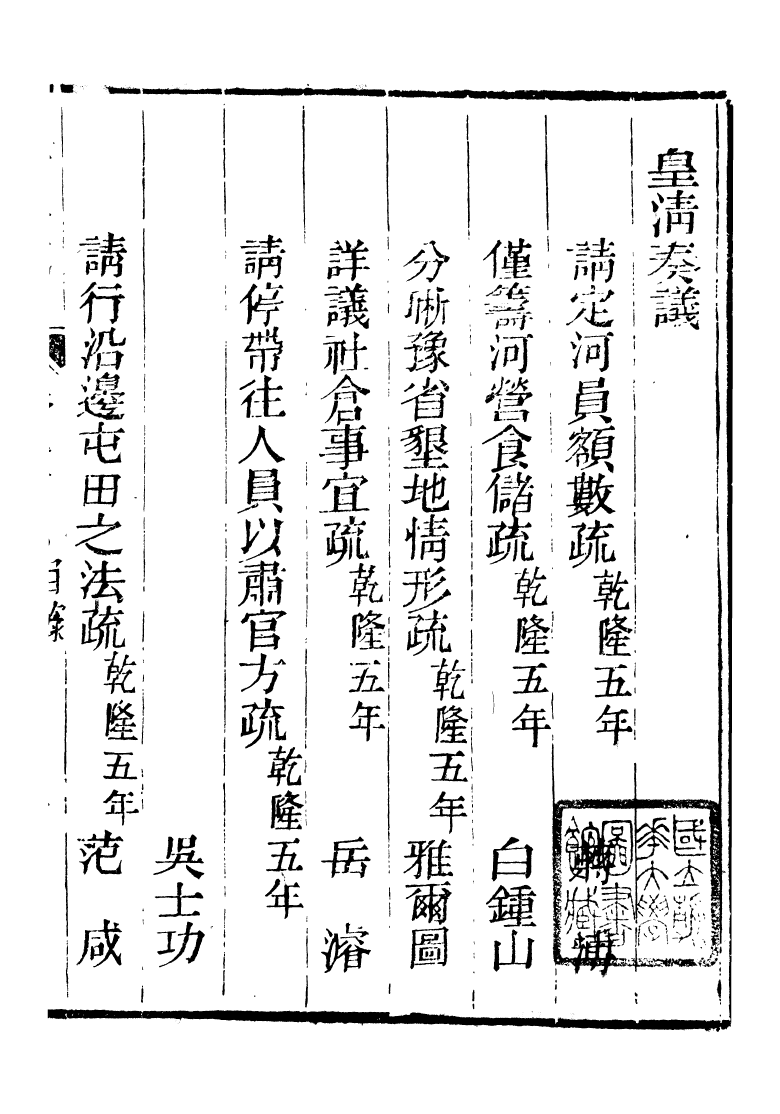 皇清奏議
請定河員額數疏乾隆五年
僅籌河營食儲疏乾隆五年 白鍾山
分晰豫省墾地情形疏乾隆五年 雅爾圖
詳議社倉事宜疏乾隆五年 岳 濬
請停帶往人員以肅官方疏乾隆五年
吳士功
請行沿邊屯田之法疏乾隆五年 范 咸
目錄
國立清華大學圖書館藏